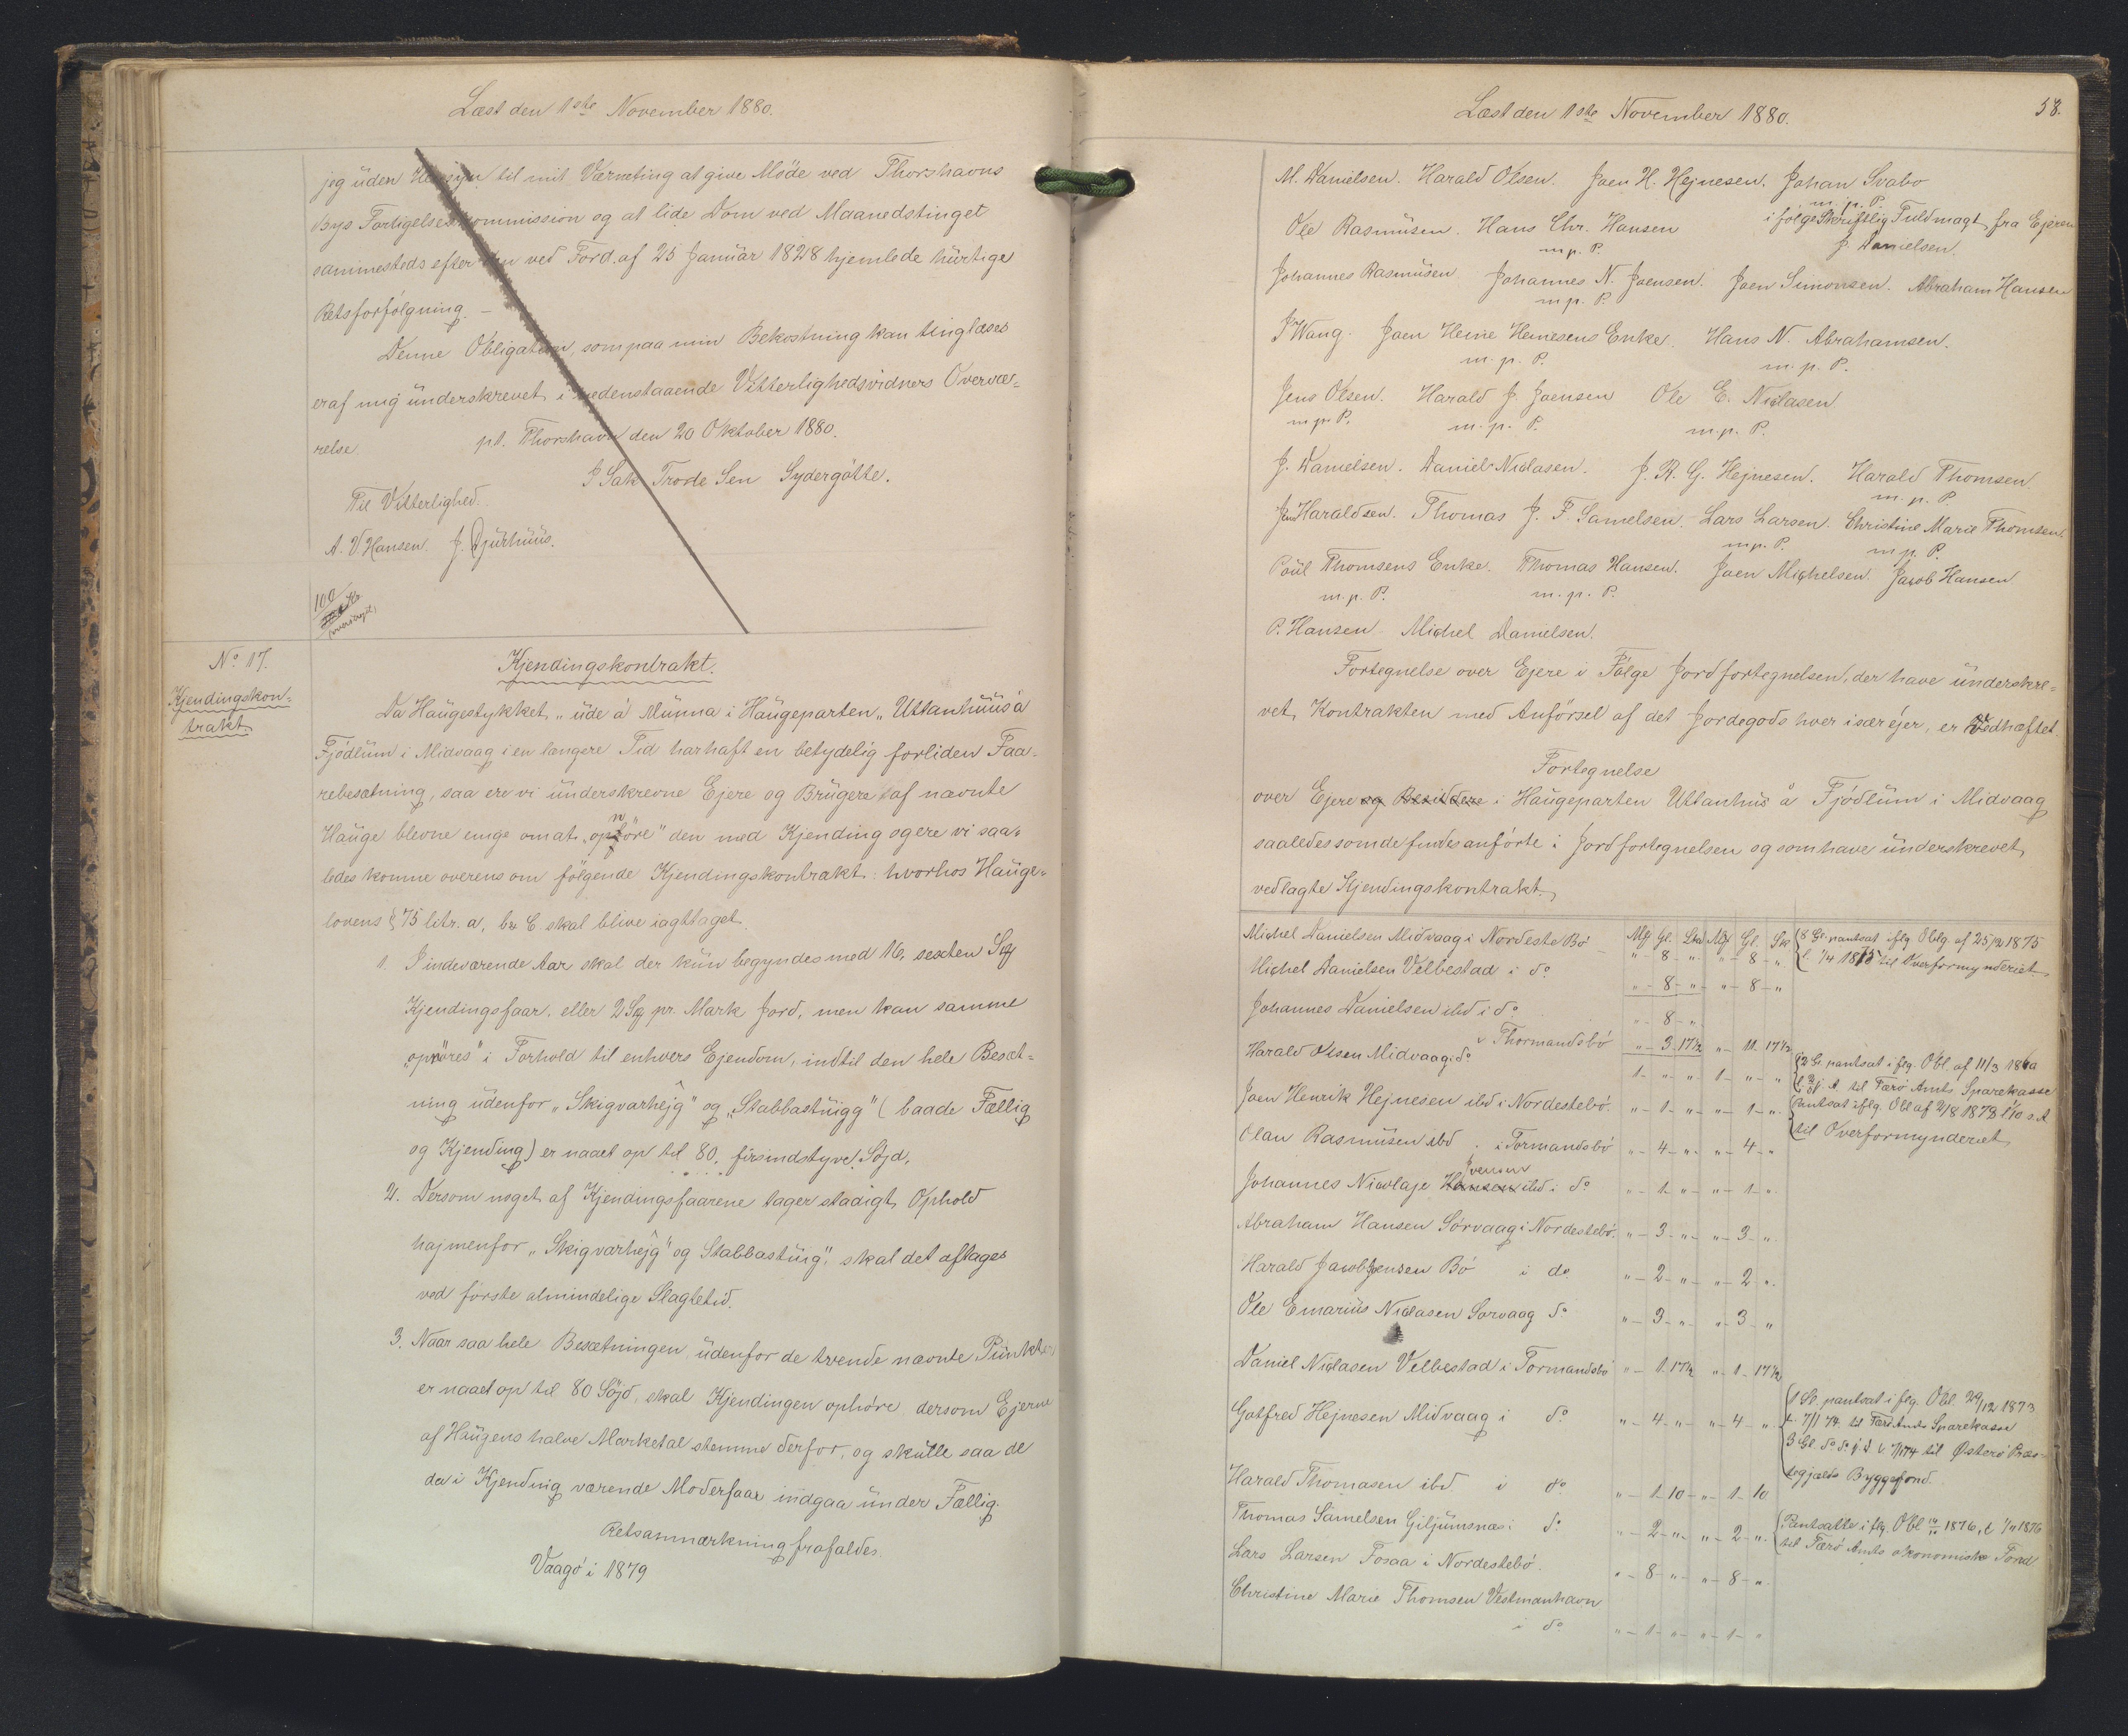 Læst den 1ste November 1880.
jeg uden Hensyn til mit Værneting at give Møde ved Thorshavns
Byes Forligelseskommission og at lide Dom ved Maanedstinget
sammesteds efter den ved Ford. af 25 Januar 1828 hjemlede hurtige
Retsforfølgning. –
Denne Obligation, som paa min Bekostning kan tinglæses
er af mig underskrevet i nedenstaaende Vitterlighedsvidners Overvæ=
relse. p.t. Thorshavn den 20 Oktober 1880.
J Sak Trode Sen Sydergøtte.
Til Vitterlighed.
A. V Hansen. J. Djurhuus.
100
No 17.
Kjendingskon=
trakt.
Kjendingskontrakt.
Da Haugestykket „ude á Munna i Haugeparten „Uttanhuus á
Fjødlum i Midvaag i en længere Tid har haft en betydelig forliden Faa=
rebesætning, saa ere vi underskrevne Ejere og Brugere af nævnte
Hauge blevne enige om at „opnøre" den med Kjending og ere vi saa=
ledes komne overens om følgende Kjendingskontrakt: hvorhos Hauge=
lovens § 75 litr. a, b & C skal blive iagttaget.
1. I indeværende Aar skal der kun begyndes med 16, sexten Stk
Kjendingsfaar, eller 2 Stk pr. Mark Jord, men kan samme
„opnøres" i Forhold til enhvers Ejendom, indtil den hele Besæt=
ning udenfor „Skigvarhejg" og „Stabbastuigg" (baade Fællig
og Kjending) er naaet op til 80, firsindstyve, Søjd.
2. Dersom noget af Kjendingsfaarene tager stadigt Ophold
hajmenfor „Skigvarhejg" og Stabbastuig", skal det aftages
ved første almindelige Slagtetid.
3. Naar saa hele Besætningen udenfor de tvende nævnte Punkter
er naaet op til 80 Søjd, skal Kjendingen ophøre dersom Ejerne
af Haugens halve Marketal stemme derfor, og skulle saa de
da i Kjending værende Moderfaar indgaa under Fællig.
Retsanmærkning frafaldes.
Vaagø i 1879
Læst den 1ste November 1880.
58.
M. Danielsen. Harald Olsen. Joen H. Hejnesen. Johan Svabo
m. p. P.
Ole Rasmusen. Hans Chr. Hansen i følge Skriftlig Fuldmagt fra Ejeren
m. p. P. J. Danielsen.
Johannes Rasmusen. Johannes N. Joensen. Joen Simonsen. Abraham Hansen
m. p. P.
J Wang. Joen Heine Heinesens Enke. Hans N. Abrahamsen.
m. p. P. m. p. P.
Jens Olsen. Harald J. Joensen Ole E. Niclasen.
m. p. P. m. p. P. m. p. P.
J. Danielsen. Daniel Niclasen. J. R. G. Hejnesen. Harald Thomsen
m. p. P.
Haraldsen. Thomas J. F. Samelsen. Lars Larsen. Christine Marie Thomsen.
m. p. P. m. p. P.
Poul Thomsens Enke. Thomas Hansen. Joen Michelsen. Jacob Hansen
m. p. P. m. p. P.
P. Hansen. Michel Danielsen.
Fortegnelse over Ejere i Følge Jordfortegnelsen, der have underskre=
vet Kontrakten med Anførsel af det Jordegods hver især ejer, er vedhæftet.
Fortegnelse
over Ejere og Besiddere i Haugeparten Uttanhus á Fjødlum i Midvaag
saaledes som de findes anførte i Jordfortegnelsen og som have underskrevet
vedlagte Kjendingskontrakt.
Mk Gl. Sk Mk Gl. Sk
Michel Danielsen Midvaag i Nordeste Bø " – 8 – " " – 8 – " 8 Gl. pantsat iflg Oblg. af 25/12 1875
l. 1/4 1875 til Overformynderiet
Michel Danielsen Velbestad i do " – 8 – " " – 8 – "
Johannes Danielsen ibd i do " – 8 – "
i Thormandsbø
Harald Olsen Midvaag i do " – 3 – 17 1/2 " – 11. 17 1/2
1 – " – " 1 – " – " 2 Gl. pantsat iflg. Obl. af 11/3
til Færø Amts Sparekasse
Joen Henrik Hejnesen ibd i Nordestebø. " – 1 – " " – 1 – " Pantsat iflg. Obl af 2/8 1878 l 1/10 s. A
til Overformynderiet
Olau Rasmusen ibd i Tormandsbø " – 4 – " " – 4 – "
Joensen
Johannes Nicolaje Hansen ibd i do " – 1 – " " – 1 – "
Abraham Hansen Sørvaag i Nordestebø. " – 3 – " " – 3 – "
Harald Jacob Joensen Bø i do " – 2 – " " – 2 – "
Ole Emarius Niclasen Sørvaag do " – 3 – " " – 3 – "
Daniel Niclasen Velbestad i Tormandsbø " – 1. 17 1/2 " – 1 – 17 1/2
Gotfred Hejnesen Midvaag i do " – 4 – " " – 4 – " 1 Gl. pantsat iflg. Obl. 29/12 1873
l. 7/1 74 til Færø Amts Sparekasse
3 Gl. do do til Østerø Præs=
tegjælds Byggefond.
Harald Thomasen ibd i do " – 1 – 10 " – 1 – 10
Thomas Samelsen Giljumsnæs i do " – 2 – " " – 2 – " Pantsatte iflg. Obl 1876, l 1/11 1876
til Færø Amts økonomiske Fond
Lars Larsen Fosaa i Nordestebø. " – 8 – " " – 8 – "
Christine Marie Thomsen Vestmanhavn
i do " – 1 – " " – 1 – "